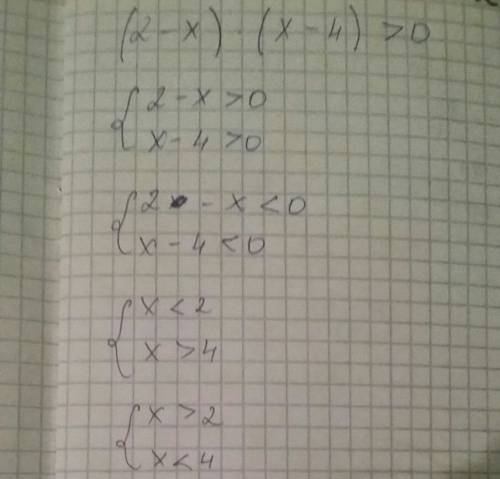 (2 - x) · (x - 4) > 0
{ 2 - x > 0
x - 4 > 0
{ 2 - x < 0
x - 4 < 0
{ x < 2
x > 4
{ x > 2
x < 4